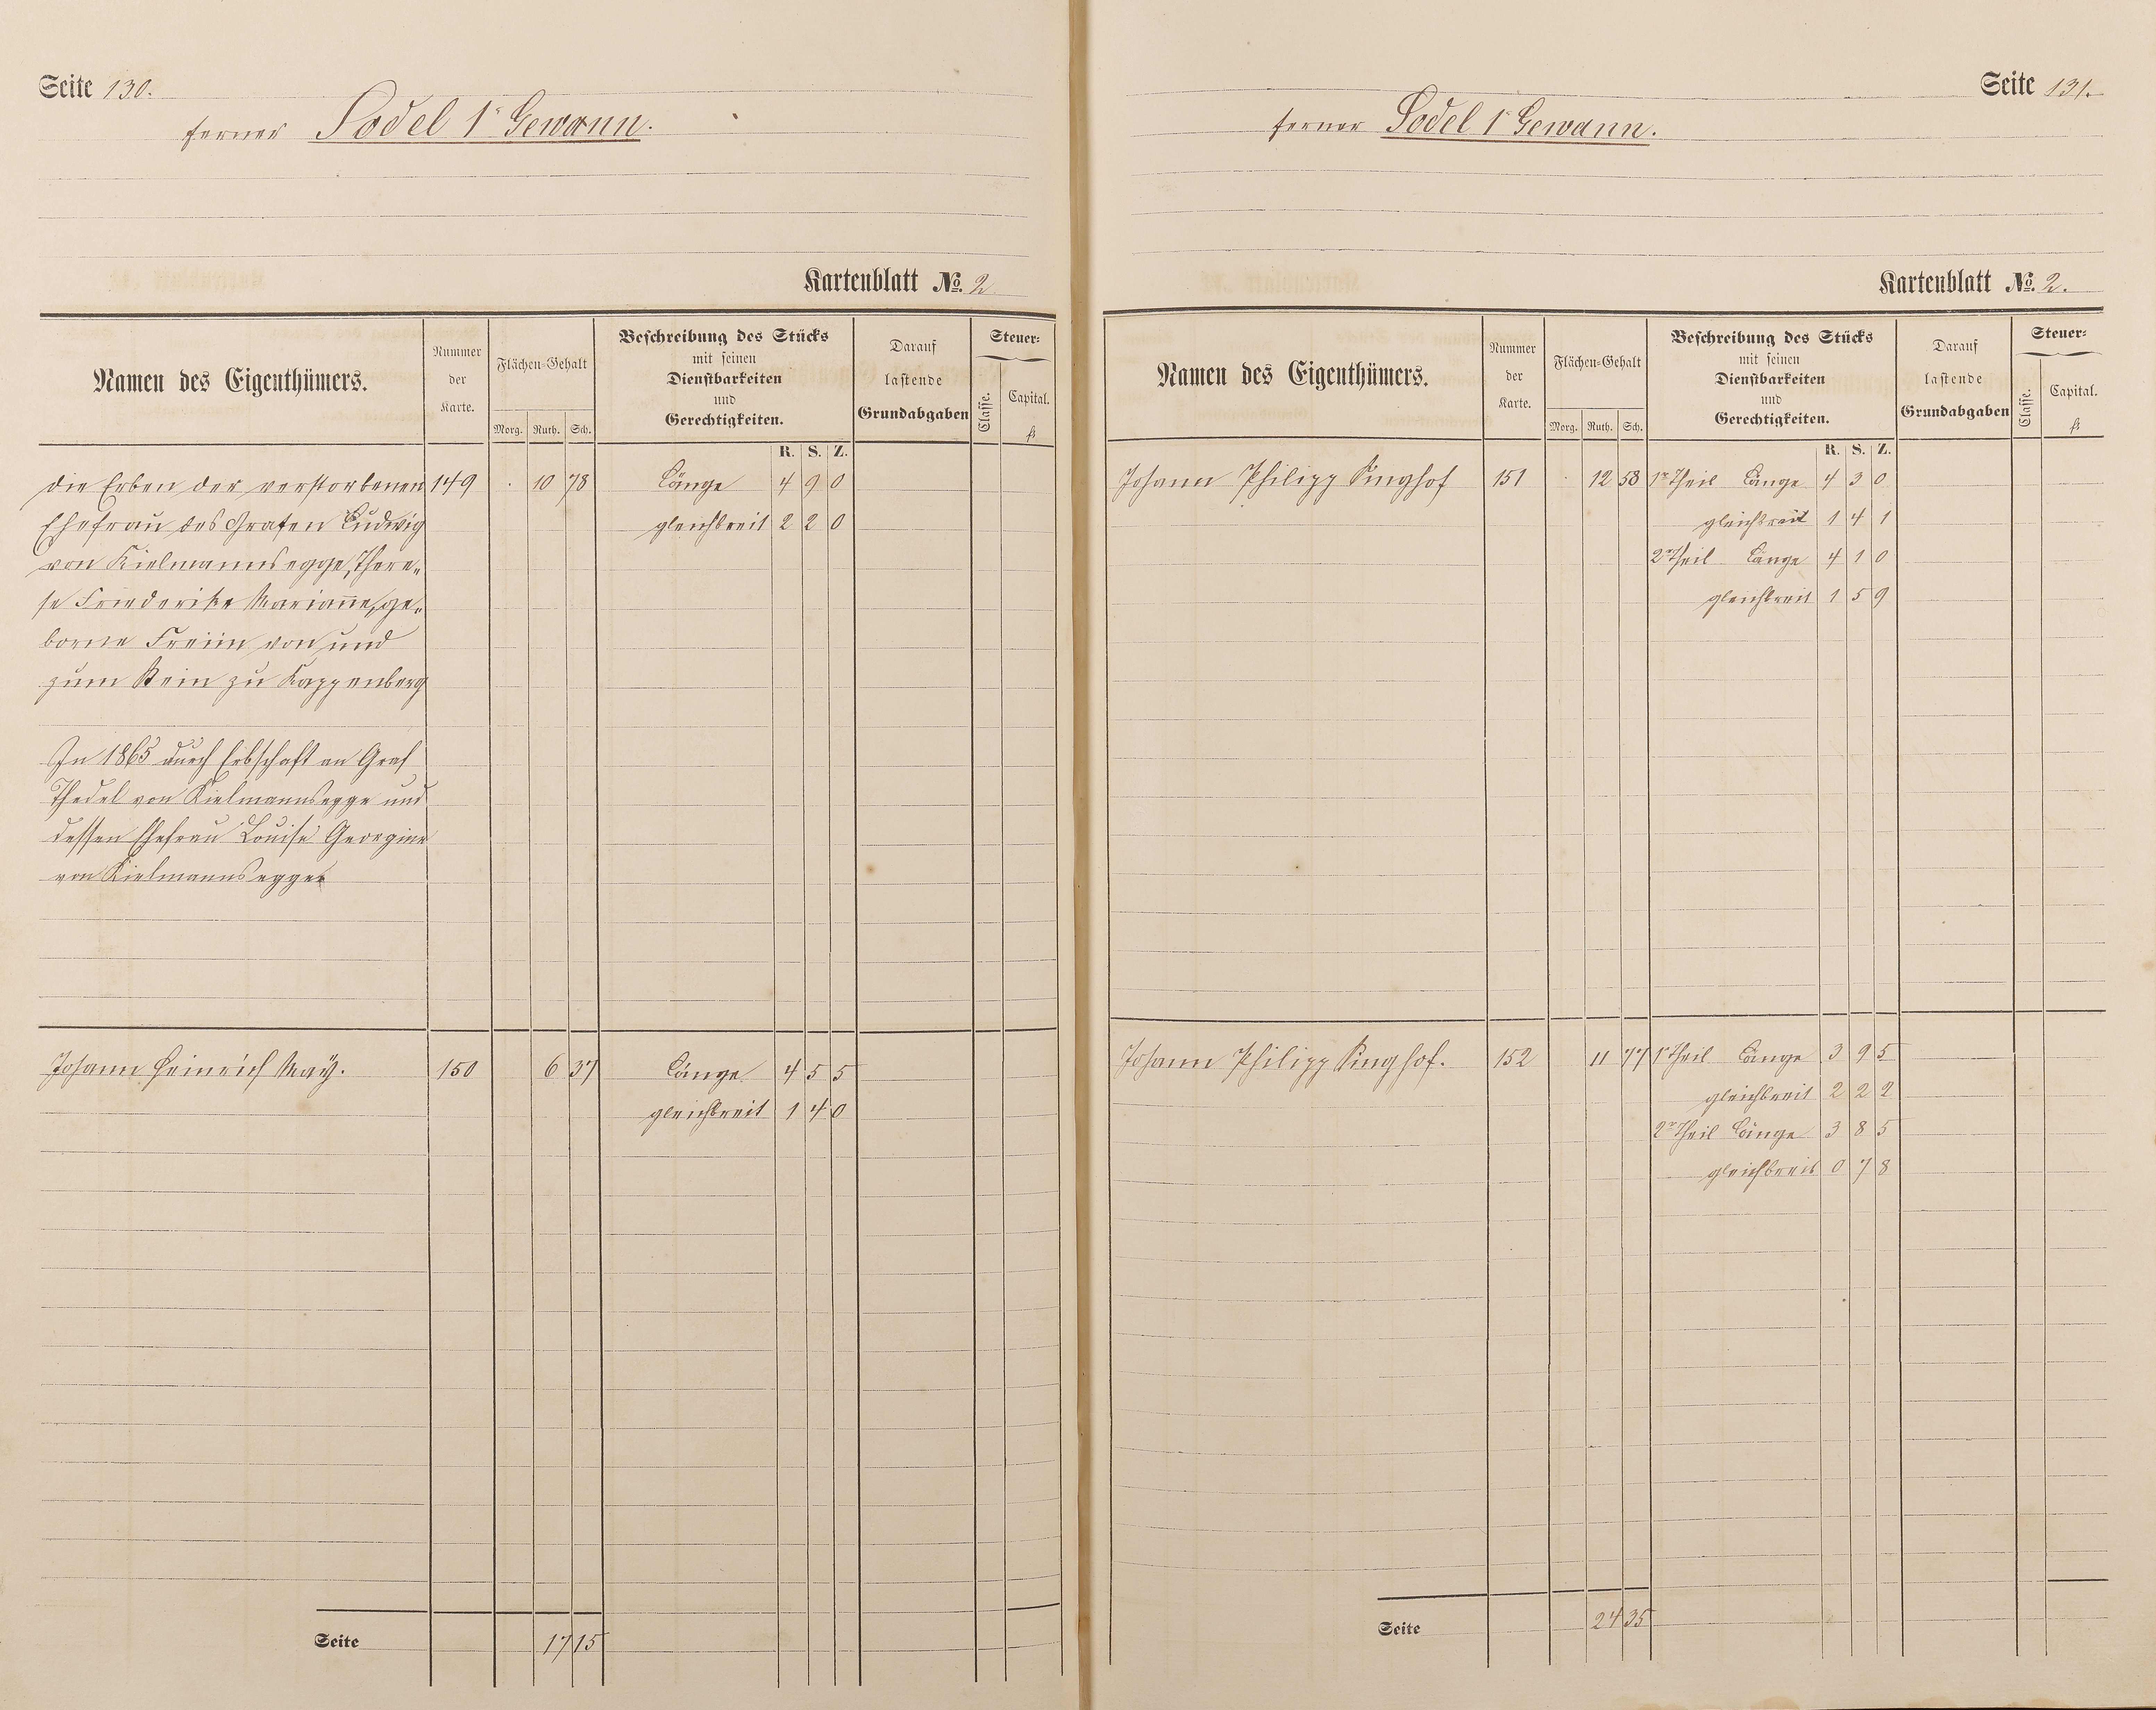 Seite 130.
ferner Sodel 1r Gewann.
Kartenblatt No. 2
Namen des Eigenthümers.
Nummer der Karte.
Flächen-Gehalt
Morg. Ruth. Sch.
Beschreibung des Stücks
mit seinen
Dienstbarkeiten
und
Gerechtigkeiten.
Darauf
lastende
Grundabgaben
Steuer-
Classe.
Capital.
fl
R. S. Z.
die Erben der verstorbenen 149 . 10 78 Länge 4 9 0
Ehefrau des Grafen Ludwig gleichbreit 2 2 0
von Kielmannsegge, There-
se Friederike Marianne, ge-
borne Freiin von und
zum Stein zu Kappenberg
In 1865 durch Erbschaft an Graf
Thedel von Kielmannsegge und
dessen Ehefrau Louise Georgine
von Kielmannsegge
Johann Heinrich Maÿ. 150 6 37 Länge 4 5 5
gleichbreit 1 4 0
Seite 17 15
Seite 131.
ferner Sodel 1r Gewann.
Kartenblatt No. 2.
Namen des Eigenthümers.
Nummer der Karte.
Flächen-Gehalt
Morg. Ruth. Sch.
Beschreibung des Stücks
mit seinen
Dienstbarkeiten
und
Gerechtigkeiten.
Darauf
lastende
Grundabgaben
Steuer-
Classe.
Capital.
fl
R. S. Z.
Johann Philipp Ringhof 151 . 12 58 1r Theil Länge 4 3 0
gleichbreit 1 4 1
2r Theil Länge 4 1 0
gleichbreit 1 5 9
Johann Philipp Ringhof. 152 11 77 1r Theil Länge 3 9 5
gleichbreit 2 2 2
2r Theil Länge 3 8 5
gleichbreit 0 7 8
Seite 24 35